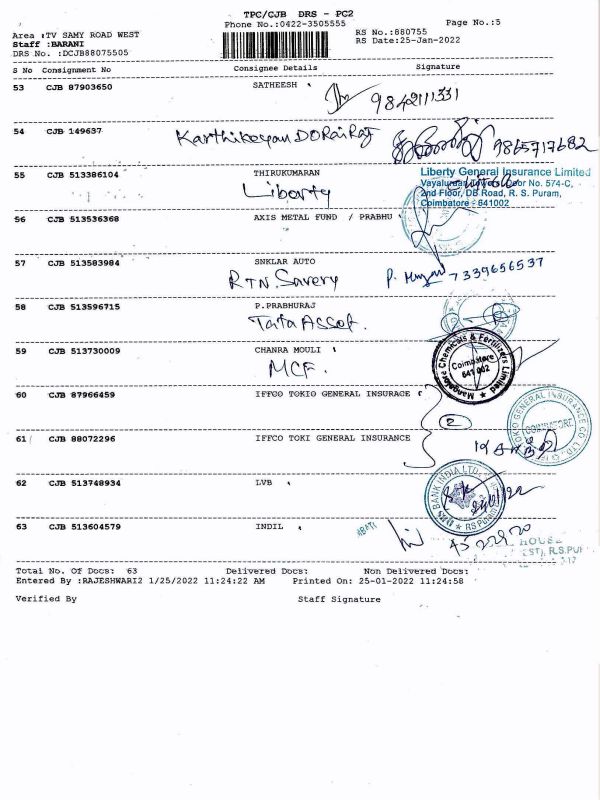 TPC/CJB DRS - PC2
Phone No.:0422-3505555
Page No.:5
Area :TV SAMY ROAD WEST
RS No.:880755
Staff :BARANI
RS Date:25-Jan-2022
DRS No. :DCJB88075505
S No Consignment No Consignee Details Signature
53 CJB 87903650 SATHEESH
9842111331
54 CJB 149637 Karthikeyan DORaiRaj
9865717682
55 CJB 513386104 THIRUKUMARAN
Liberty
Liberty General Insurance Limited
2nd Floor, DB Road, R. S. Puram,
Coimbatore - 641002
56 CJB 513536368 AXIS METAL FUND / PRABHU
57 CJB 513583984 SNKLAR AUTO
RTN. Savery
7339656537
58 CJB 513596715 P.PRABHURAJ
Tata Assof.
59 CJB 513730009 CHANRA MOULI
MCF.
Mangalore Chemicals & Fertilizers Limited
Coimbatore
641 002
60 CJB 87966459 IFFCO TOKIO GENERAL INSURACE
2
61 CJB 88072296 IFFCO TOKI GENERAL INSURANCE
TOKIO GENERAL INSURANCE CO LTD.
COIMBATORE
62 CJB 513748934 LVB
BANK INDIA LTD.
DBS
RS Puram
63 CJB 513604579 INDIL
HOUSE
EST), R.S.PU
Total No. Of Docs: 63 Delivered Docs: Non Delivered Docs:
Entered By :RAJESHWARI2 1/25/2022 11:24:22 AM Printed On: 25-01-2022 11:24:58
Verified By Staff Signature